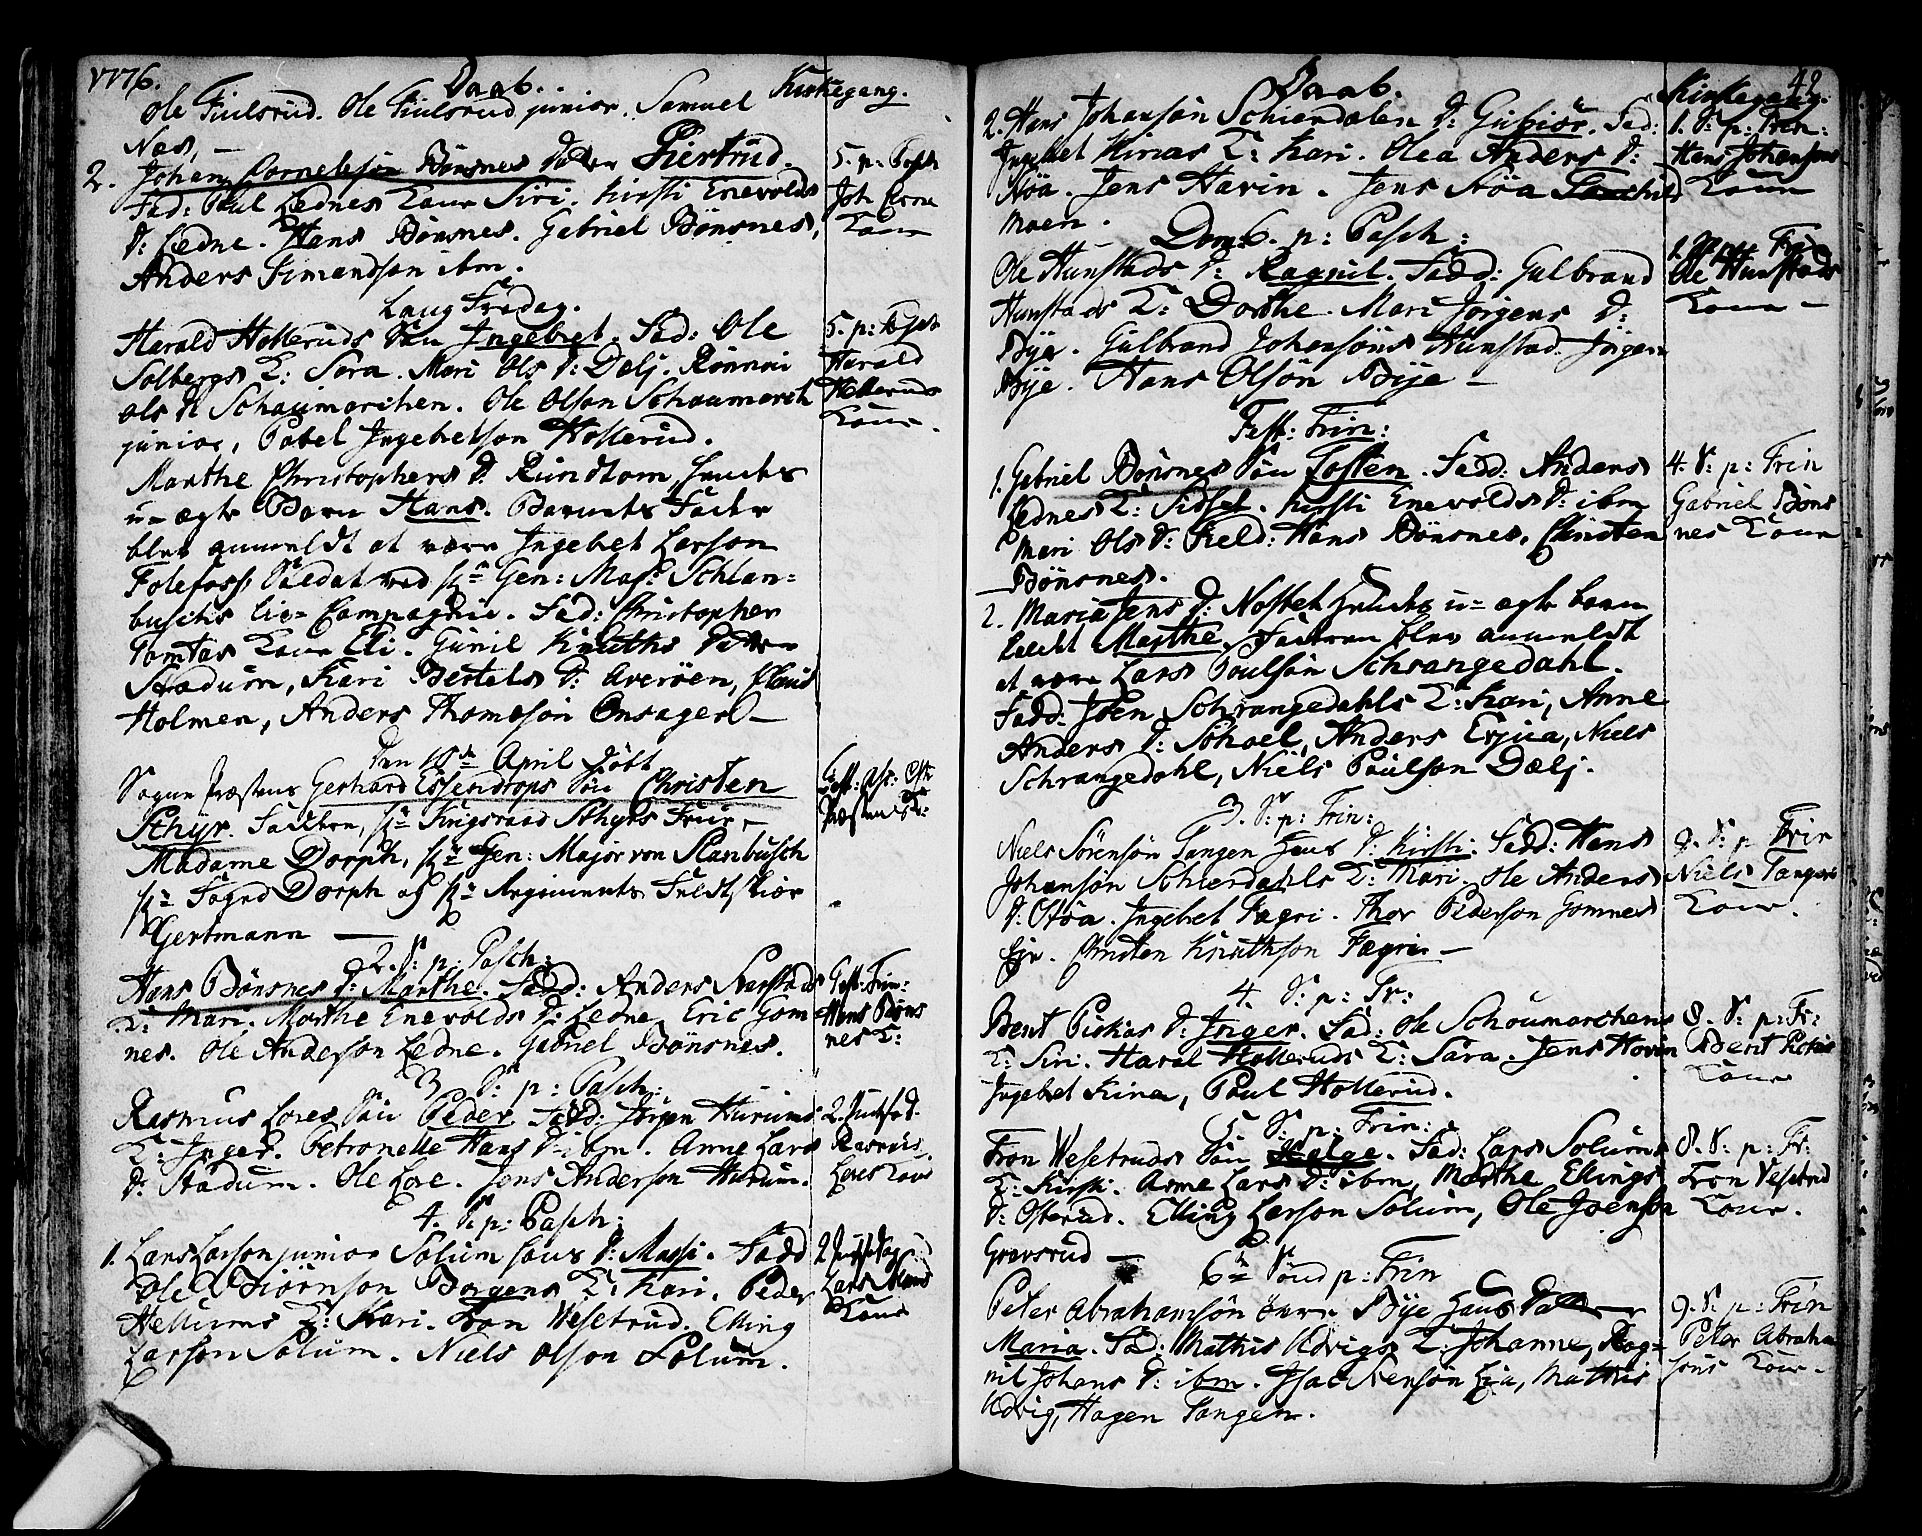 1776.
Daab.
Kirkegang.
Ole Fiulsrud. Ole Fiulsrud junior. Samuel
Næs.
2. Johan Cornelison Bönsnes Datter Giertrud.
Fad: Poul Lednes Kone Siri. Kirsti Enevolds
D: Ledne. Hans Bönsnes. Gabriel Bönsnes,
Anders Simandson ibm.
5. p: Pasch
Joh Corne
Kone
Lang Fredag.
Harald Holleruds Sön Ingebret. Fad: Ole
Solbergs K: Sara. Mari Ols D: Delj. Rönnoi
Ols D Schoumarchen. Ole Olson Schoumarch
junior, Pobel Ingebretson Hollerud.
5. p: Pasch
Harald
Holleruds
Kone.
Marthe Christophers D. Rundtom hendes
u-ægte Barn Hans. Barnets Fader
blev anmeldt at være Ingebret Larson
Folefoss Soldat ved Hr Gen: Maj: Schlan-
buschs Liv-Compagnie. Fad: Christopher
Tomtas Kone Eli. Gunil Knuths Datter
Stadum, Kari Bertels D: Averöen, Claus
Holmen, Anders Thomasön Onsager.
Den 18de April döbt
Sogne Præstens Gerhard Essendrops Sön Christen
Schyr. Faddere, Hr Krigsraad Schyrs Frue,
Madame Dorph, Hr Gen: Major von Slanbusch
Hr Fogd Dorph og Hr Regiments Feldtskiær
Gertmann
2. S: p: Pasch:
Hans Bönsnes D: Marthe. Fadd: Anders
K: Mari. Marthe Enevolds D: Ledne. Eric Gom
nes. Ole Anderson Ledne. Gabriel Bönsnes.
Fest: Trin:
Hans Böns
nes K:
3 S: p: Pasch:
Rasmus Lores Sön Peder. Fadd: Jörgen Hurums
K: Inger. Petronelle Hans D ibm. Anne Lars
D: Stadum. Ole Lore. Jens Anderson Hurum.
Rasmus
Lores Kone
4. S. p: Pasch:
1. Lars Larson junior Solum hans D: Massi. Fadd
Ole Biörnson Borgens K: Kari. Peder
Hellums K: Kari. Tron Wesetrud. Elling
Larson Solum. Niels Olson Solum.
Kone
42
Daab.
Kirkegang.
2. Hans Johansön Schierdalen D: Gubiör. Fad:
Ingebret Kinas K: Kari. Olea Anders D:
Stöa. Jens Havin. Jens Stöa
Moen.
1. S: p: Trin:
Hans Johansons
Kone
Dom 6. p: Pasch:
Ole Hunstads D: Ragnil. Fadd: Gulbrand
Hunstads K: Dorthe. Mari Jörgens D:
Bye. Gulbrand Johansöns Hunstad. Jörgen
Bye. Hans Olsön Bye
Ole Hunstads
Kone
Fest: Trin:
1. Gabriel Bönsnes Sön Tosten. Fadd: Anders
Lednes K: Sidsel. Kirsti Enevolds D: ibm
Mari Ols D: Field: Hans Bönsnes, Christen
Bönsnes.
4. S: p: Trin
Gabriel Böns
nes Kone
2. Maria Jens D: Nostet hendes u-ægte barn
kaldt Marthe. Faderen blev anmeldt
at være Lars Poulsön Schrangedahl.
Fadd: Joen Schrangedahls K: Kari, Anne
Anders D: Sohoel, Anders Erjua, Niels
Schrangedahl, Niels Poulson Dælj.
3. S: p: Trin:
Niels Sörensön Tangen hans D: Kirsti. Fadd: Hans
Johansön Schierdahls K: Mari. Ole Anders
D: Stöa. Ingebret Fægri. Thor Pederson Gomnes
Eje. Christen Knuthson Fægri
9. S: p Trin
Niels Tangens
Kone.
4. S: p: Tr:
Bent Pickas D: Inger. Fad: Ole Schoumarchens
K: Siri. Haral Holleruds K: Sara. Jens Hovin
Ingebret Kina, Poul Hollerud.
8. S: p: Tr:
Bent Pickas
Kone
5 S: p: Trin:
Tron Wesetruds Sön Helge. Fad: Lars Solums
K: Kirsti. Anne Lars D: ibm, Marthe Ellings
D: Osterud. Elling Larson Solum, Ole Joenson
Gravsrud
8. S. p: Tr:
Tron Vesetrud
Kone.
6te Sönd p: Trin
Peter Abrahamsön Övre Bye hans Datter
Maria. Fad: Mathis Udvigs K. Johanne, Rag-
nil Johans D: ibm. Isac Stenson Lia, Mathis
Udvig, Hagen Tangen.
9. S. p: Trin
Peter Abraham
sons Kone.